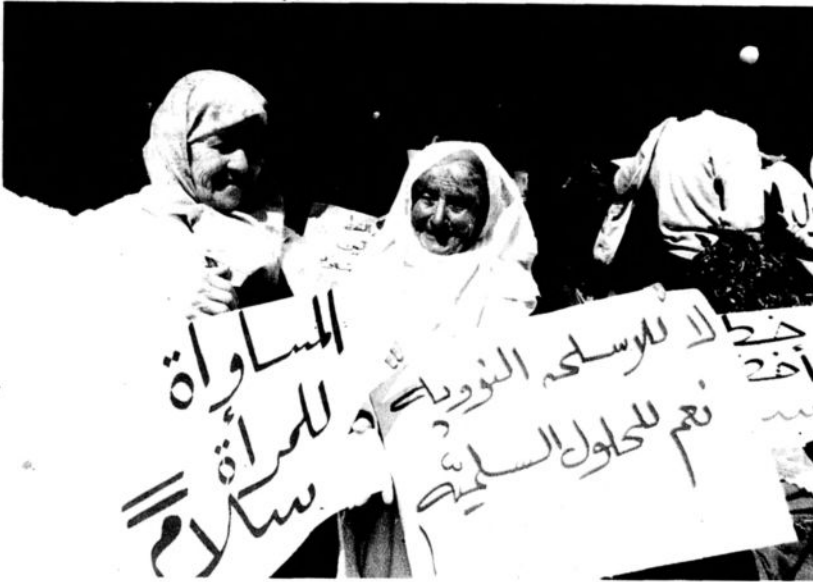 المساواة
للمرأة
سلامٌ
لا للاسلحه النوويه
نعم للحلول السلميّه
خط
أخذ